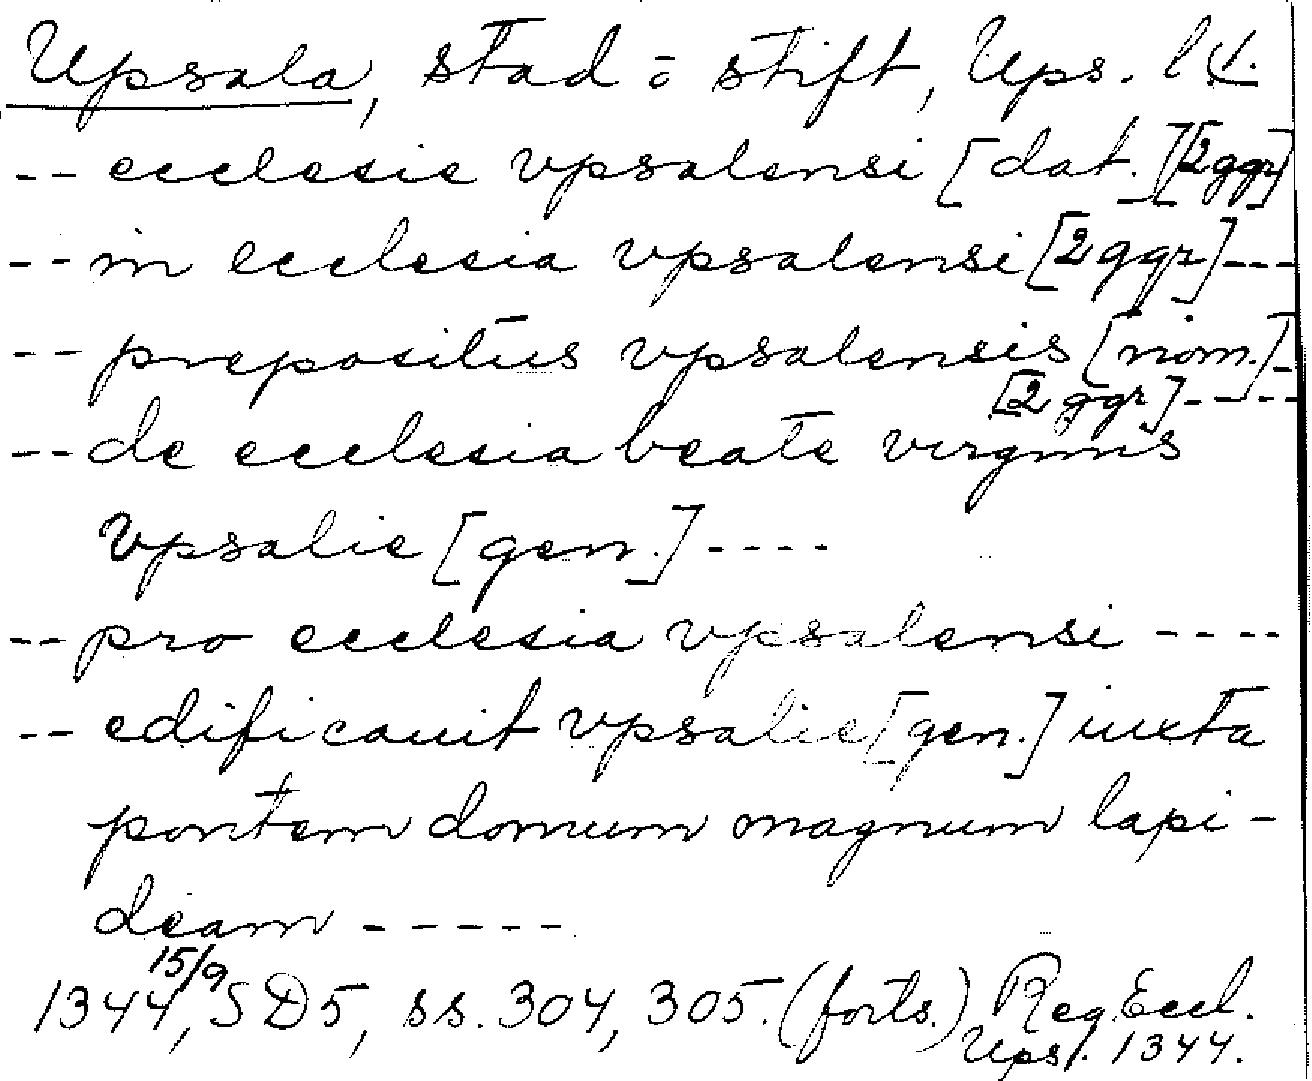 Upsala, stad o stift, Ups. l 1.
-- ecclesie vpsalensi [dat.] [2ggr]
-- in ecclesia vpsalensi [2ggr] ---
-- prepositus vpsalensis [nom.] -
[2 ggr] -----
-- de ecclesia beate virginis
vpsalie [gen.] ----
-- pro ecclesia vpsalensi ----
-- edificauit vpsalie [gen.] iuxta
pontem domum magnum lapi-
deam -----
1344 15/9, SD5, ss. 304, 305. (forts.) Reg Eccl.
Ups. 1344.